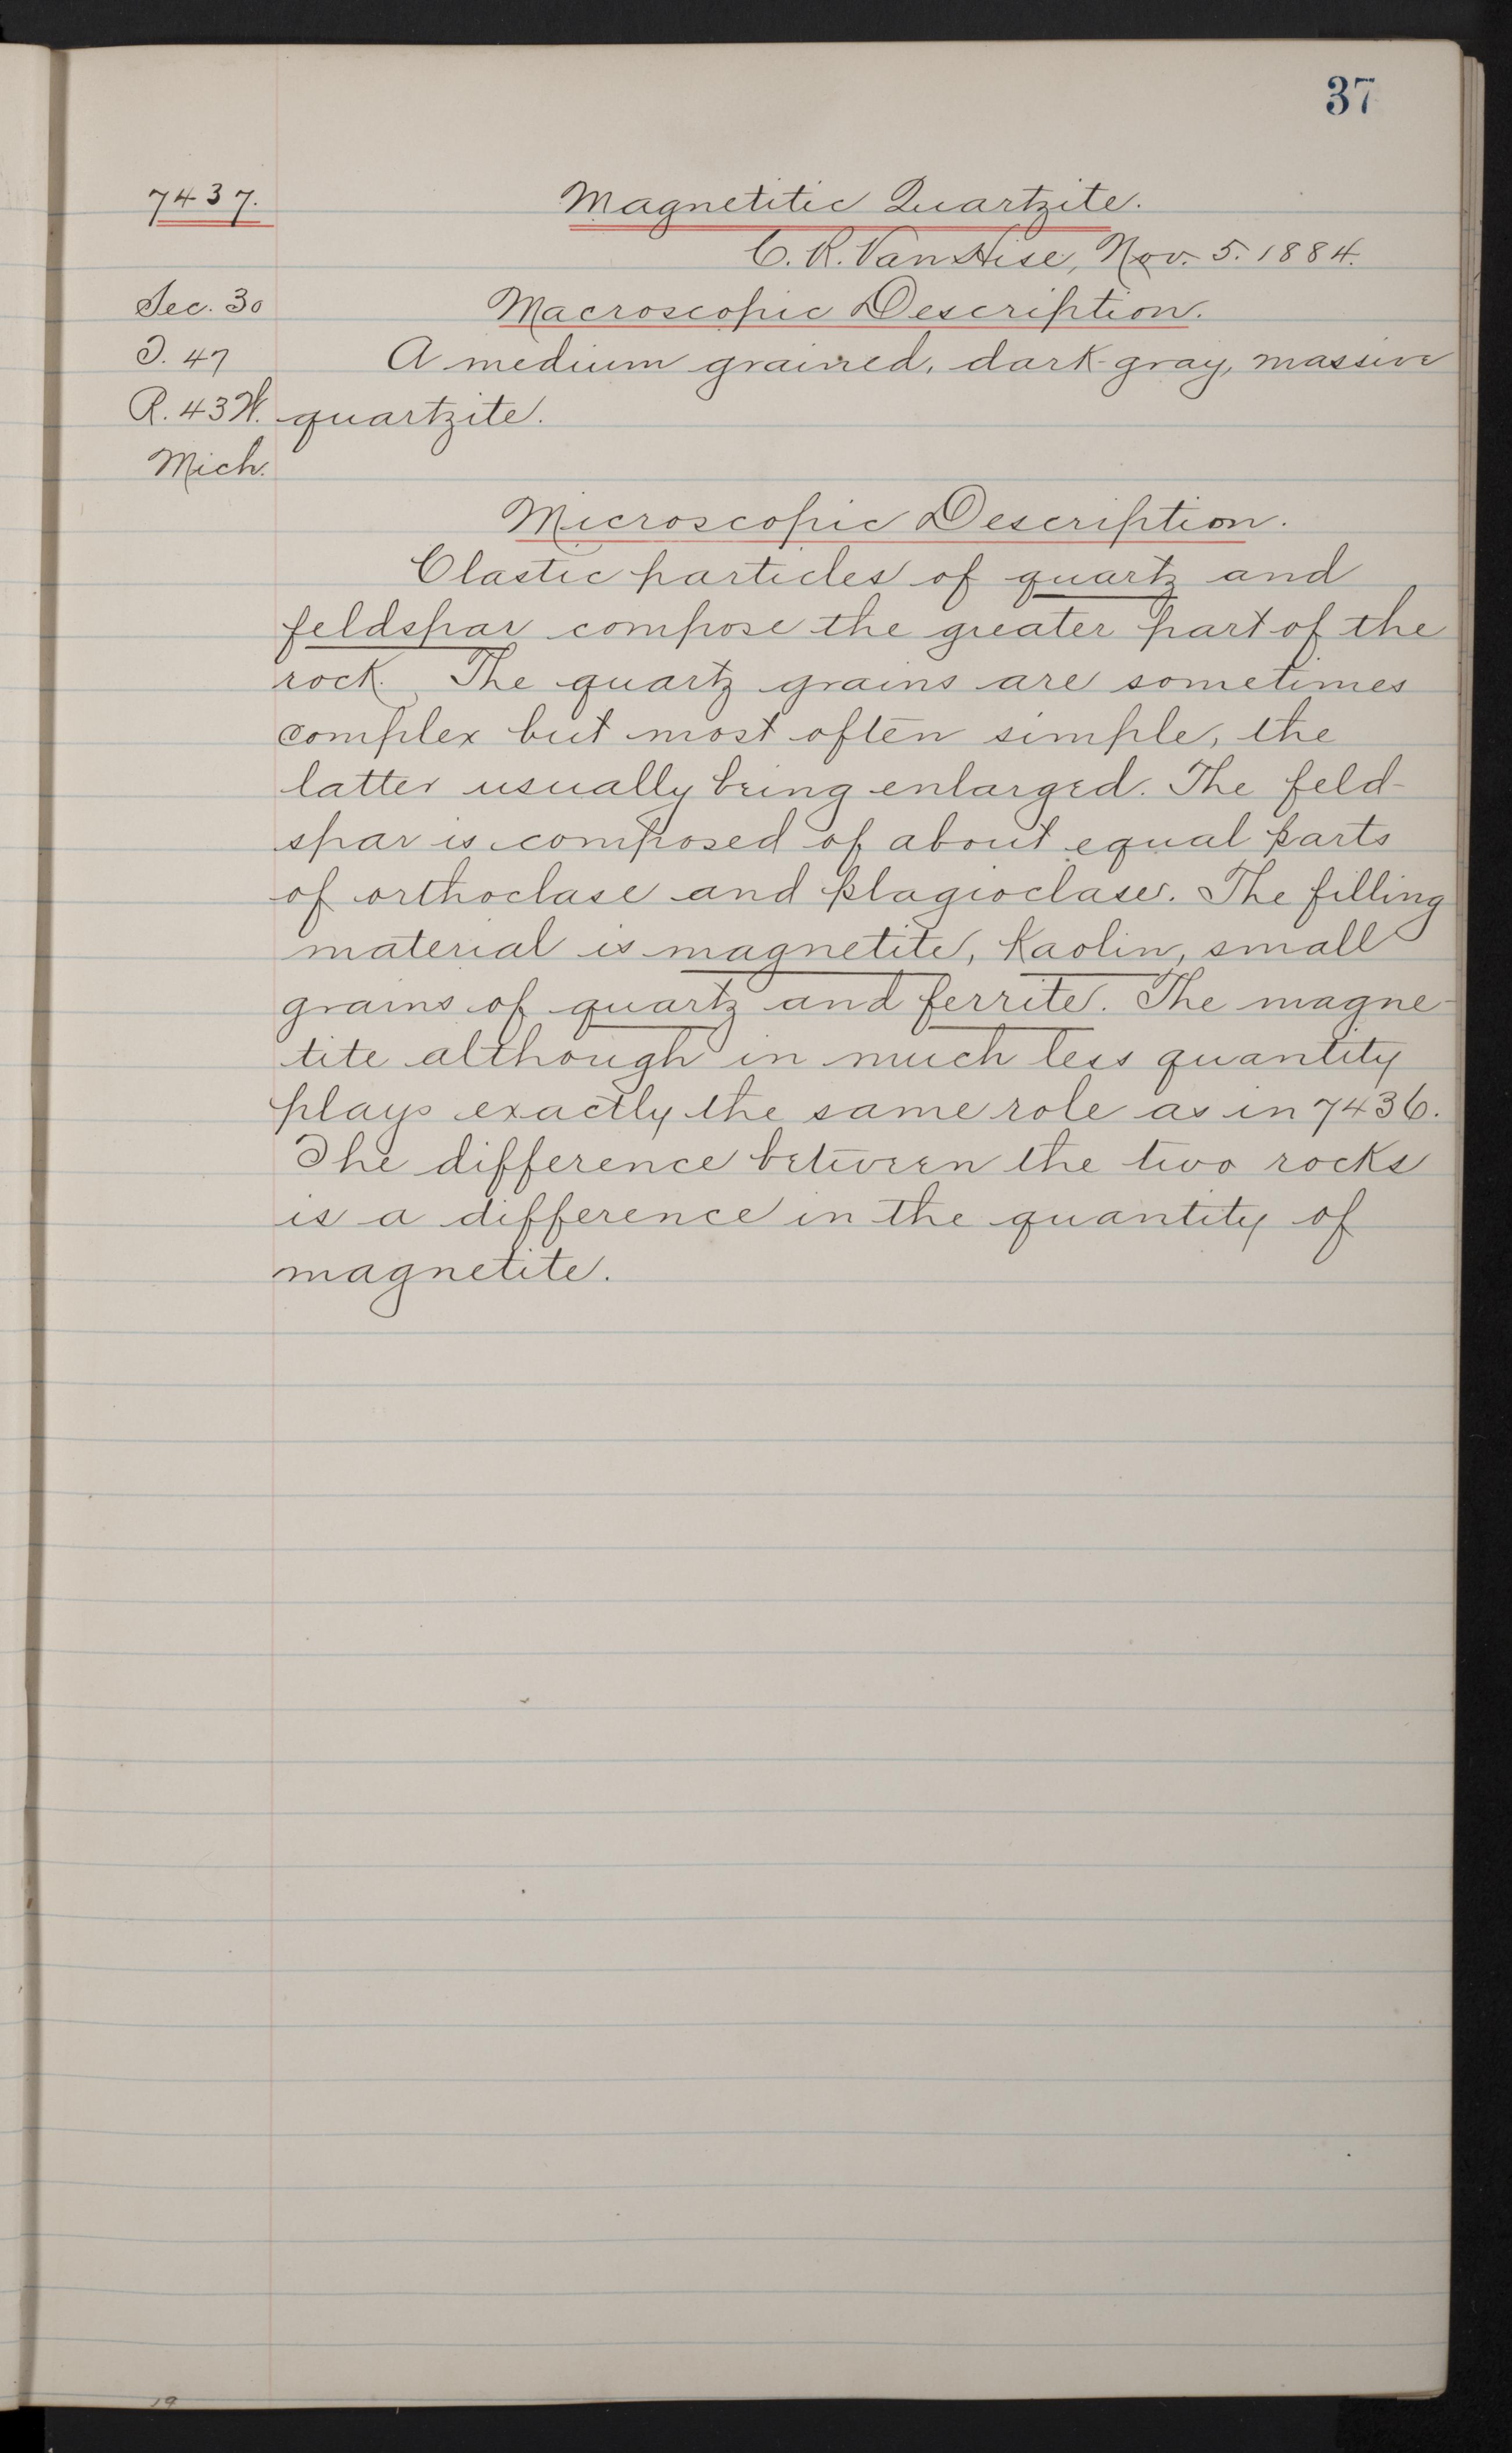 37
7437.
Magnetitic Quartzite.
C. R. Van Hise, Nov. 5. 1884.
Sec. 30
Macroscopic Description.
T. 47
A medium grained, dark-gray, massive
R. 43 W.
quartzite.
Mich.
Microscopic Description.
Clastic particles of quartz and
feldspar compose the greater part of the
rock. The quartz grains are sometimes
complex but most often simple, the
latter usually being enlarged. The feld-
spar is composed of about equal parts
of orthoclase and plagioclase. The filling
material is magnetite, kaolin, small
grains of quartz and ferrite. The magne-
tite although in much less quantity
plays exactly the same role as in 7436.
The difference between the two rocks
is a difference in the quantity of
magnetite.